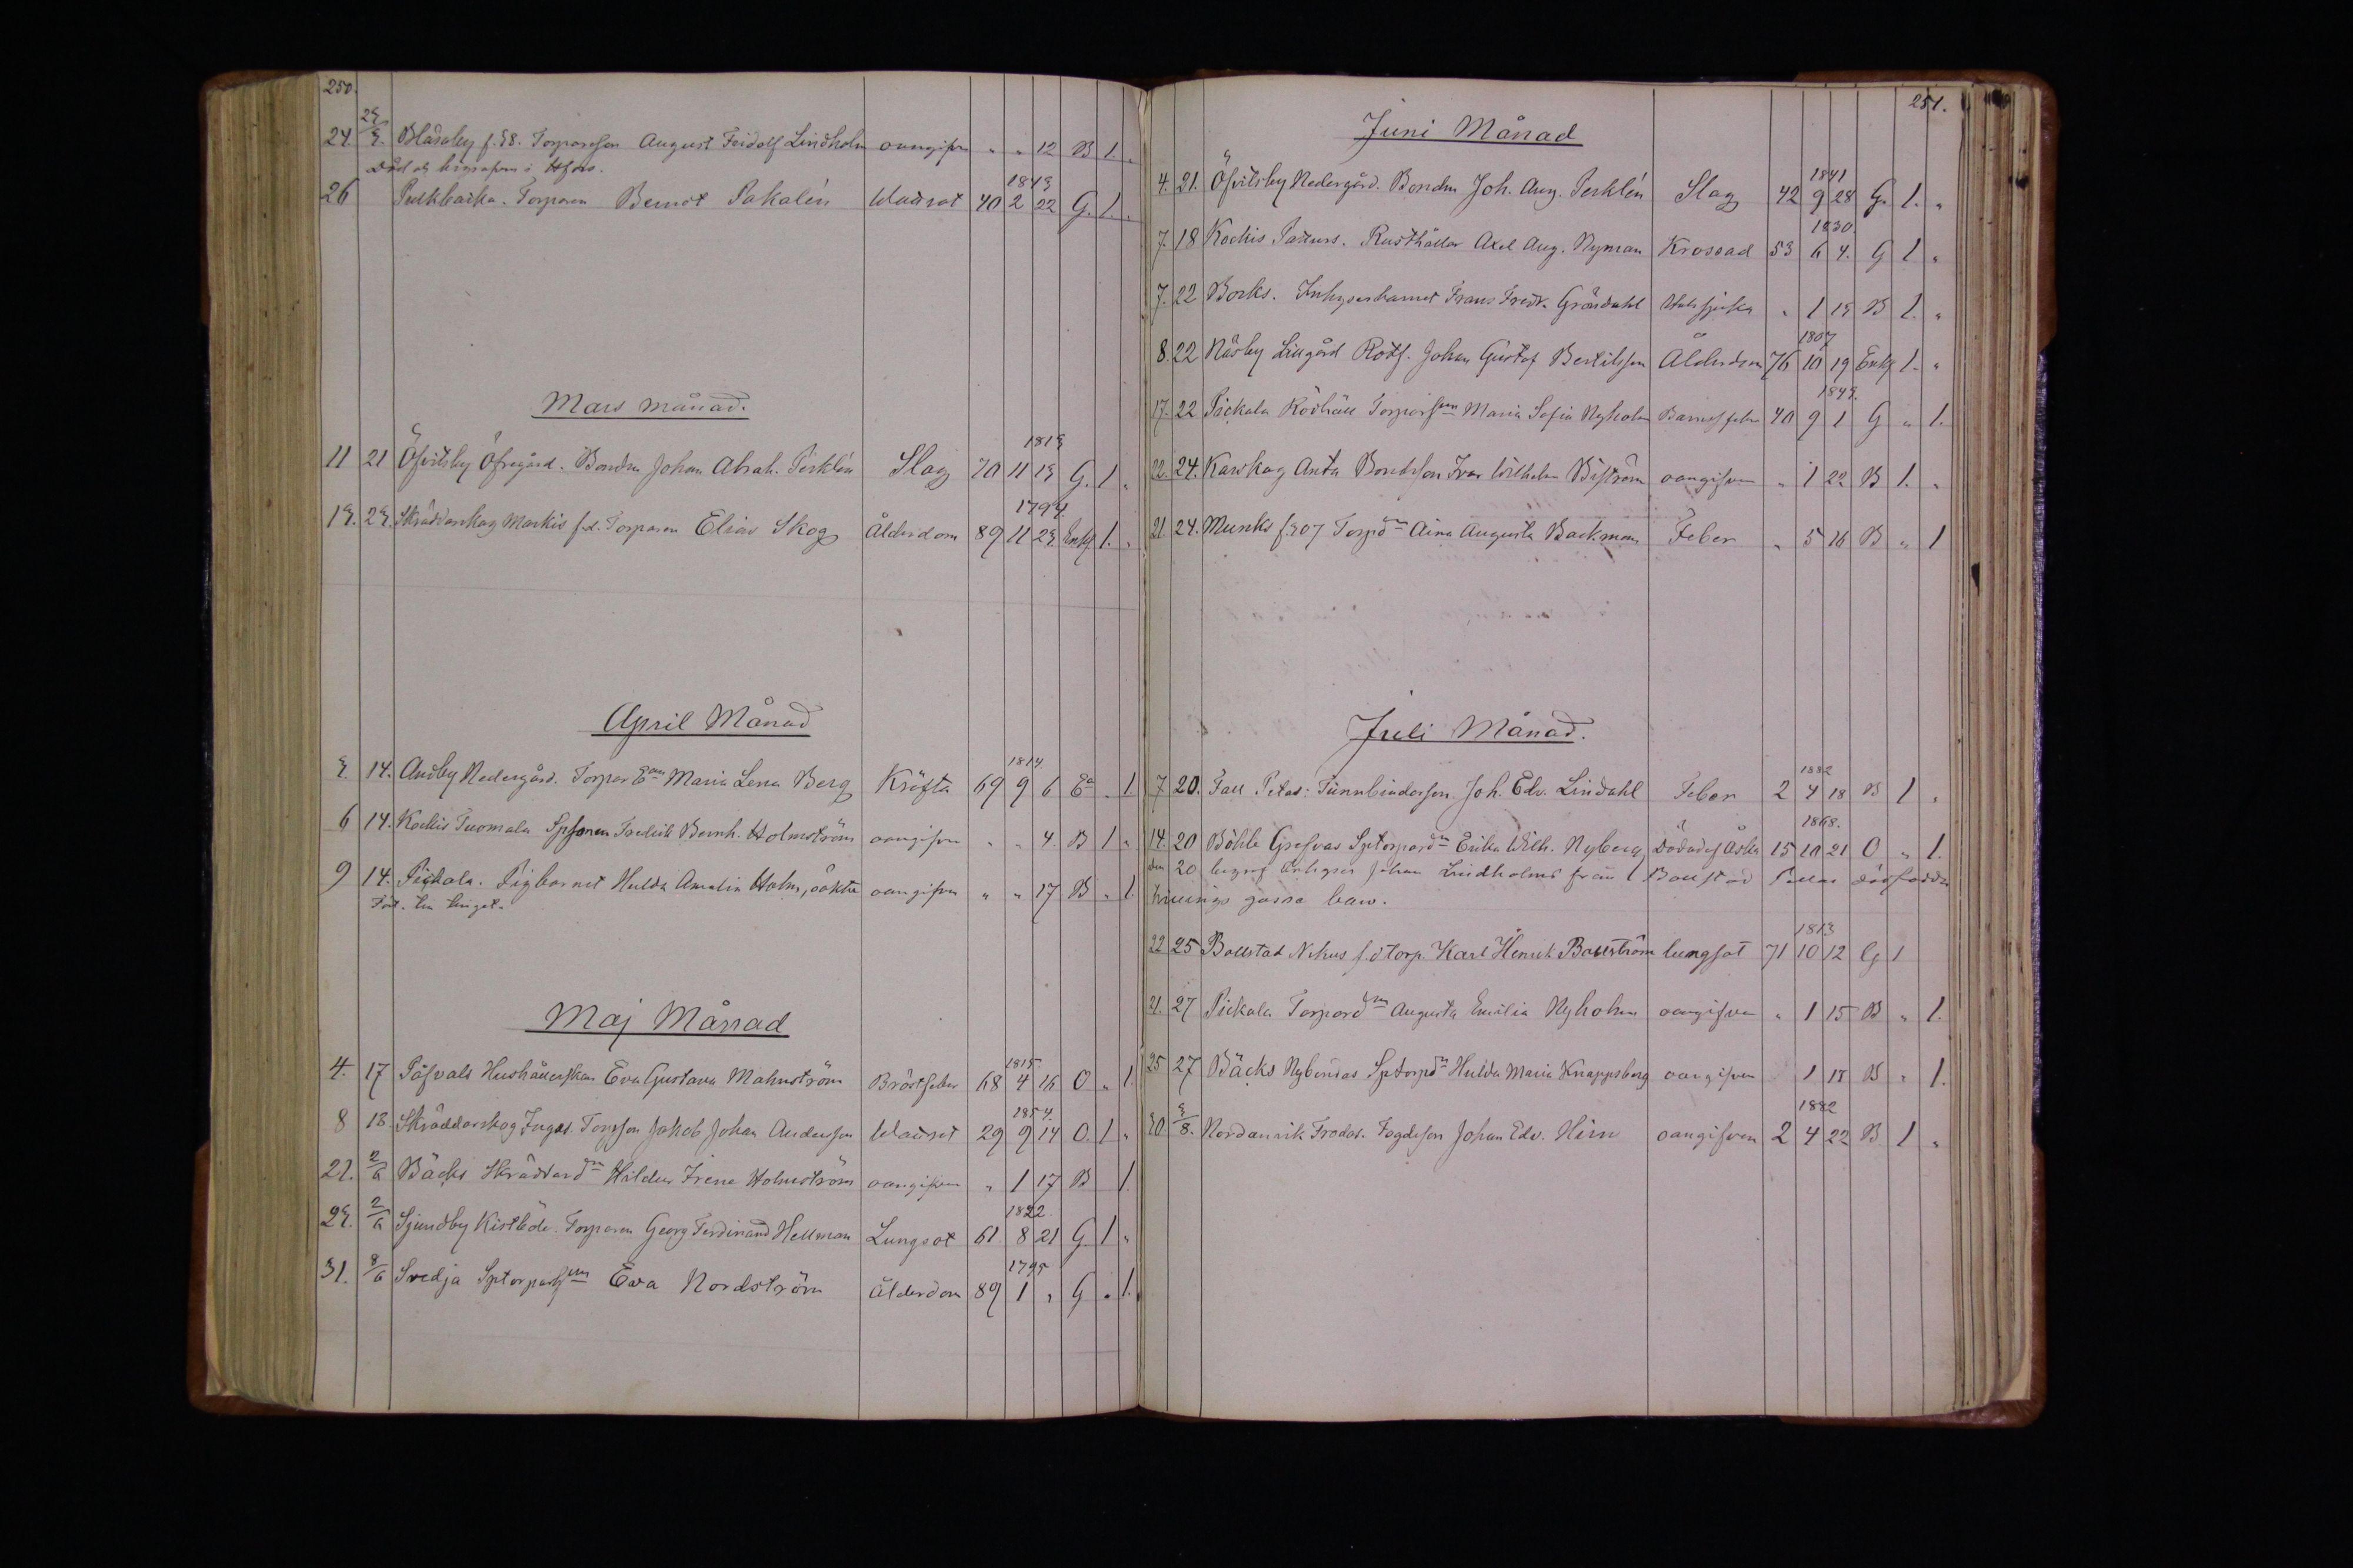 250.
24. 24/3. Blåsaby f. 38. Torpareson August Feidolf Lindholm oangifven " " 12 B 1. "
Död och begrafven i Hfors.
1843
26 Pulkbacka. Torparen Berndt Pakalén 40 2 22 G. 1. "
Mars månad.
1813
11 21 Öfvitsby Öfregård. Bonden Johan Abrah. Perklén Slag 70 11 13 G. 1 "
1794
13. 23. Skräddarskog Markis f.d. Torparen Elias Skog Ålderdom 89 11 23 Enkl 1. "
April Månad
1814
3 14. Andby Nedergård. Torpar Ean Maria Lena Berg Kräfta 69 9 6 Ea " 1
6 14. Kockis Tuomala Fredrik Bernh. Holmström oangifven " " 4. B 1 "
9 14. Pickala. Pigbarnet Hulda Amalia Holm, oäkta oangifven " " 17 B " 1
Maj Månad
1815.
4. 17 Påfvals Hushållerskan Eva Gustava Malmström Bröstfeber 68 4 16 O " 1.
1854.
8 13. Skräddarskog Ingas. Torpson Jakob Johan Anderson 29 9 14 O. 1 "
22. 2/6 Bäcks Skräddard:n Hilder Irene Holmström oangifven " 1 17 B 1.
1822.
23. 2/6 Sjundby Kistböle. Torparen Georg Ferdinand Hellman Lungsot 61 8 21 G. 1 "
1795
31. 8/6 Svedja Eva Nordström ålderdom 89 1 " G " 1.
251.
Juni Månad
1841
4. 21. Öfvitsby Nedergård. Bonden Joh. Aug. Perklén Slag 42 9 28 G. 1. "
1830.
7. 18 Kockis Rusthållar Axel Aug. Nyman Krossad 53 6 4. G 1 "
7. 22 Borks. Inhysesbarnet Frans Fredr. Gröndahl Halssjuka " 1 13 B 1. "
1807
8. 22 Näsby Lillgård Rotf. Johan Gustaf Bertilsson Ålderdom 76 10 19 Enkl 1. "
1843.
17. 22 Pickala Rödhäll Maria Sofia Nyholm Barnsfeber 40 9 1 G " 1.
22. 24. Karskog Anta Bondeson Ivar Wilhelm Biström oangifven " 1 22 B 1. "
21. 24. Munks f. 307 Torpd:n Aina Augusta Backman Feber " 5 16 B " 1
Juli Månad.
1882
7 20. Fall Petas: Tunnbindarson Joh. Edv. Lindahl Feber 2 4 18 B 1 "
1868.
14. 20 Böhle Grefvas Sptorpard:n Erika Wilh. Nyberg Dödad af Åska 15 10 21 O " 1.
den 20 Inhyses Johan Lindholms från Bollstad dödfödde
tvillings gosse barn.
1813
22 25 Bollstad Nihus f.d torp. Karl Henrik Bollström lungsot 71 10 12 G 1
21. 27 Pickala Torpard:n Augusta Emilia Nyholm oangifven " 1 15 B " 1.
25 27 Bäcks Nybondas Sptorpd:n Hulda Maria Knappsberg oangifven 1 18 B " 1.
1882
30 3/8. Nordanvik Frodas. Fogdeson Johan Edv. Hirn oangifven 2 4 22 B 1 "